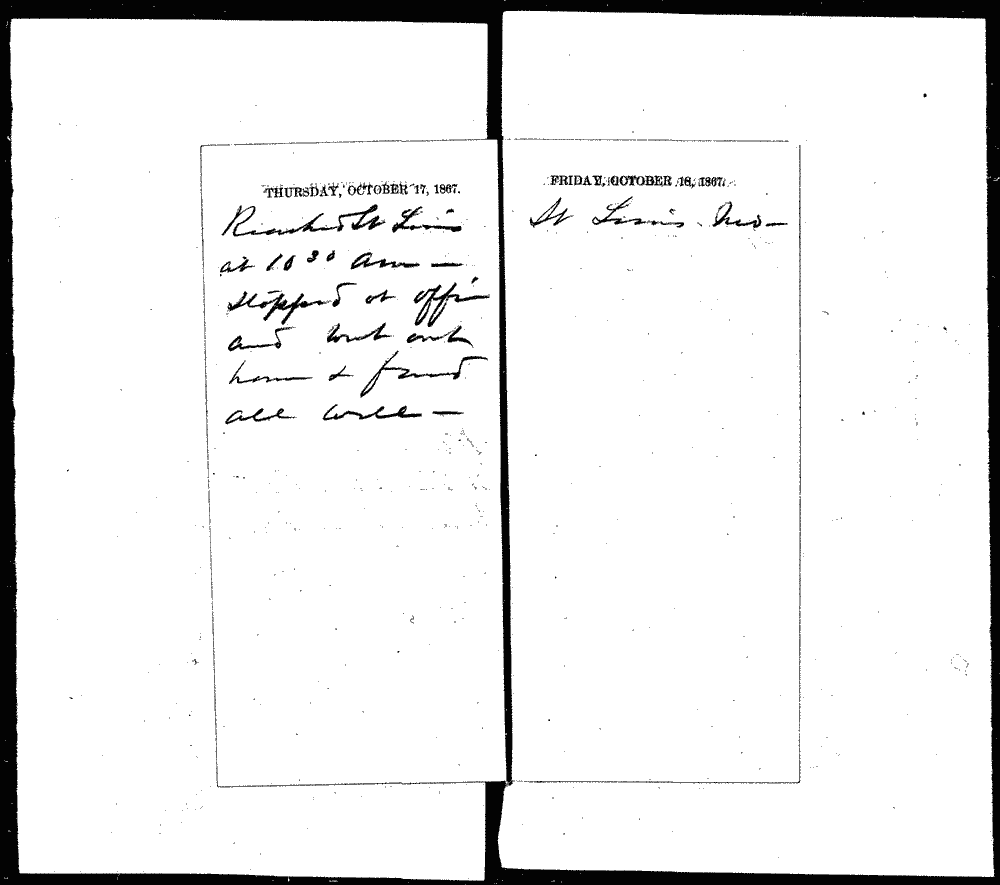 THURSDAY, OCTOBER 17, 1867.
Reached St Louis
at 10 30 am —
stopped at office
and went out
home & found
all well —
FRIDAY, OCTOBER 18, 1867.
St Louis Mo —